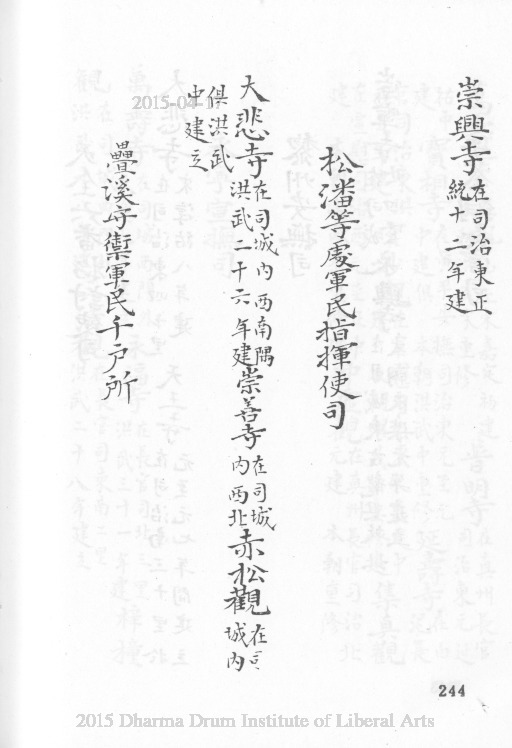 崇興寺在司治東正
統十二年建
松潘等處軍民指揮使司
大悲寺在司城內西南隅
洪武二十六年建崇善寺在司城
內西北赤松觀在司
城內
俱洪武
中建立
疊溪守禦軍民千戶所
244
2015-04-1
2015 Dharma Drum Institute of Liberal Arts